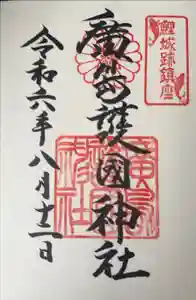 鯉城跡鎮座
廣島護國神社
令和六年八月十二日